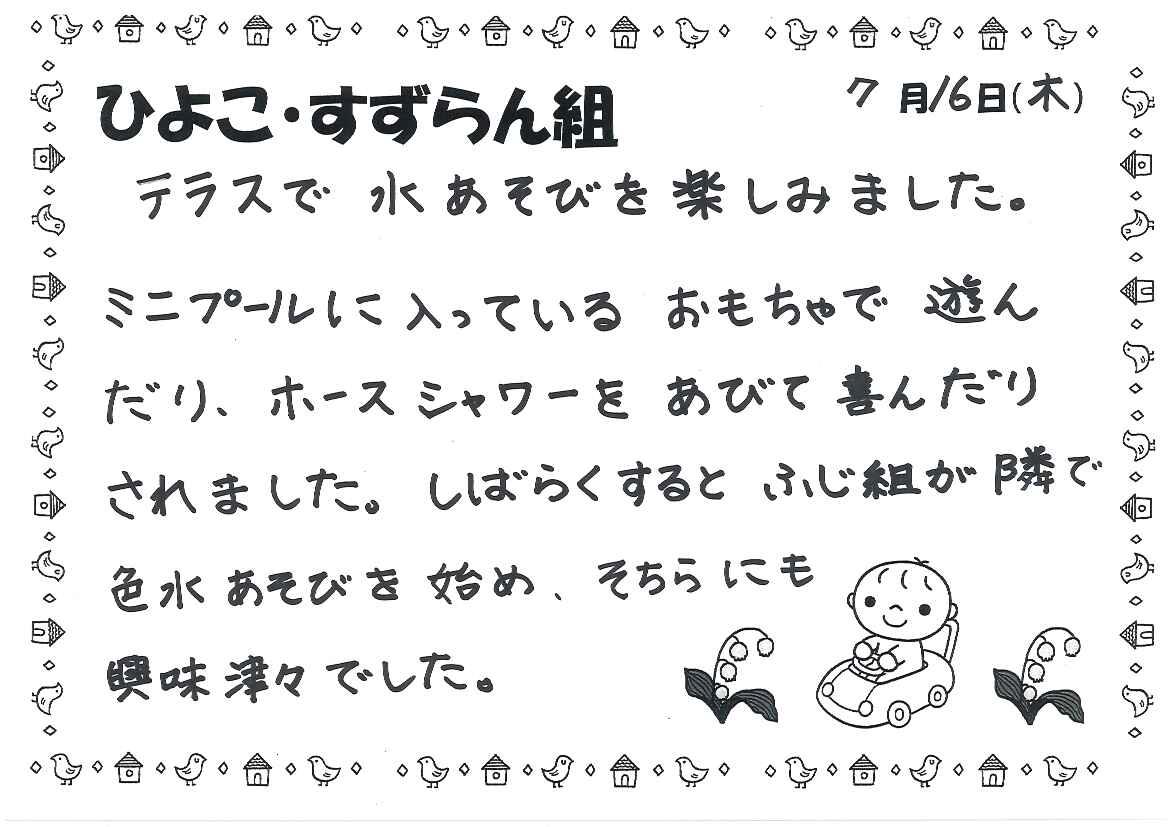 ひよこ・すずらん組
7月16日(木)
テラスで 水あそびを楽しみました。
ミニプールに入っている おもちゃで 遊ん
だり、ホースシャワーを あびて喜んだり
されました。しばらくすると ふじ組が隣で
色水あそびを始め、そちらにも
興味津々でした。